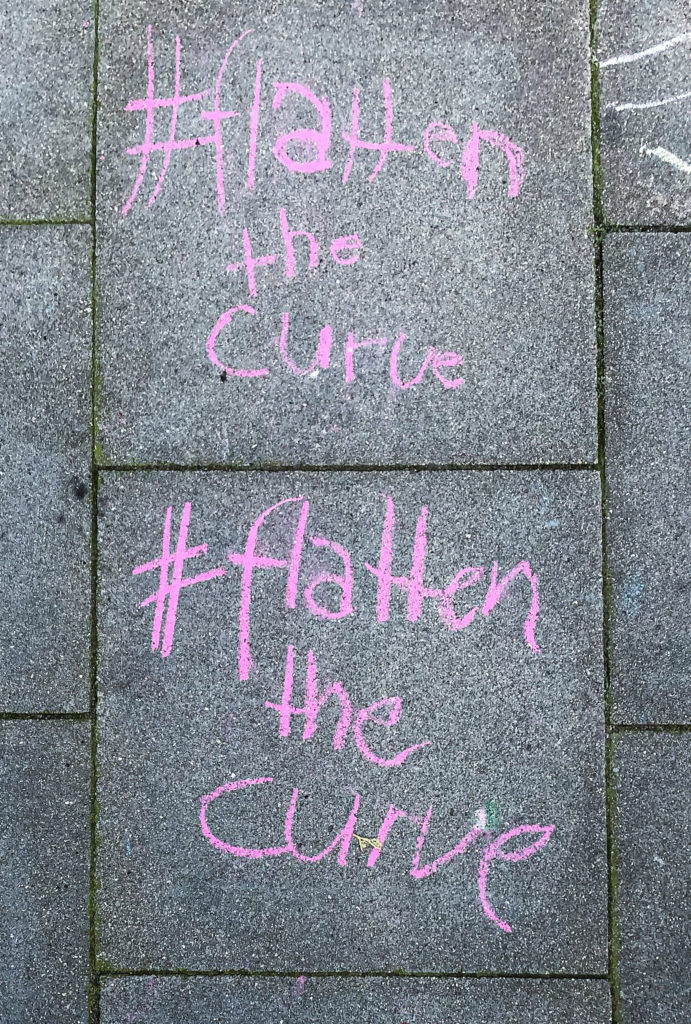 #flatten
the
curve
#flatten
the
curve